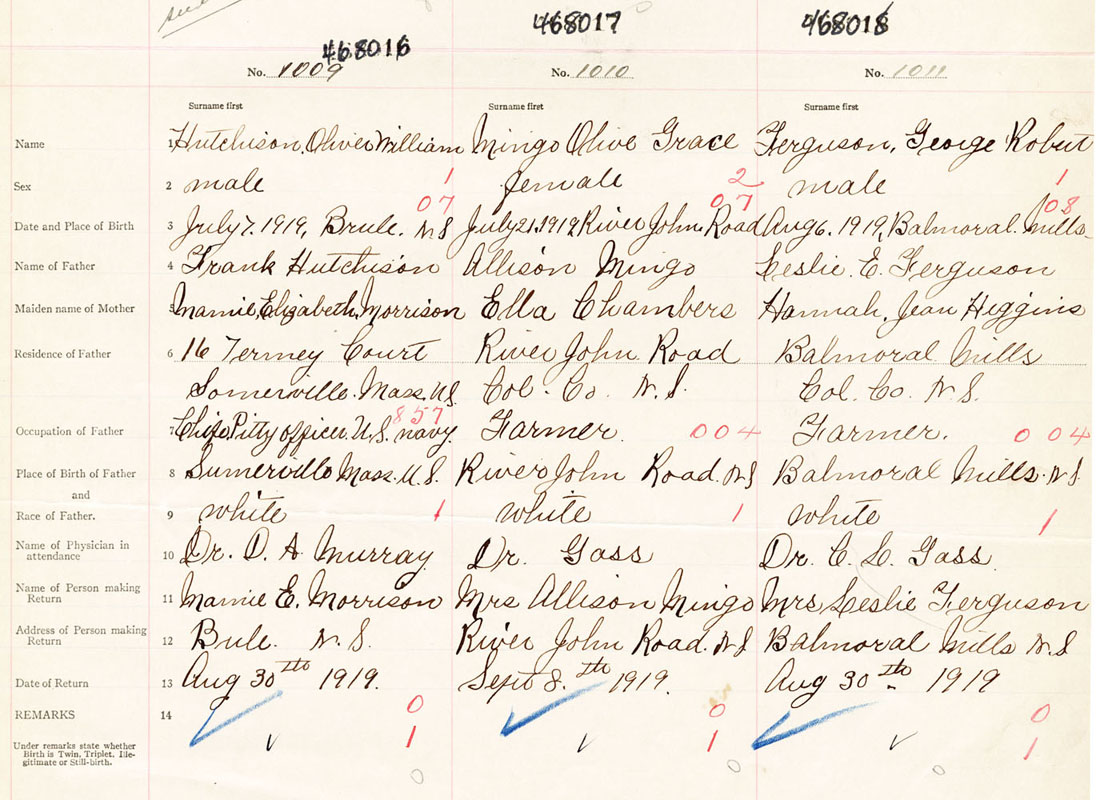 468016 468017 468018
No. 1009 No. 1010 No. 1011
Surname first Surname first Surname first
Name 1 Hutchison, Oliver William Mingo Olive Grace Ferguson, George Robert
Sex 2 male 1 female 2 male 1
07 07 08
Date and Place of Birth 3 July 7. 1919, Brule. N S July 21. 1919, River John. Road Aug 6. 1919, Balmoral. Mills.
Name of Father 4 Frank Hutchison Allison Mingo Leslie. E. Ferguson
Maiden name of Mother 5 Mamie, Elizabeth, Morrison Ella Chambers Hannah, Jean Higgins
Residence of Father 6 16 Court River John. Road Balmoral Mills
Somerville. Mass. U.S. Col. Co. N. S. Col. Co. N. S.
857
Occupation of Father 7 Chife, Pitty officer. U.S. navy. Farmer. 004 Farmer. 004
Place of Birth of Father 8 Sumerville Mass. U.S. River John Road. N S Balmoral Mills. N S.
and
Race of Father. 9 white 1 white 1 white 1
Name of Physician in
attendance 10 Dr. D. A Murray Dr. Gass Dr. C. L. Gass.
Name of Person making
Return 11 Mamie E. Morrison Mrs Allison Mingo Mrs, Leslie Ferguson
Address of Person making
Return 12 Bule. N. S. River John Road. N S Balmoral Mills N. S
Date of Return 13 Aug 30th 1919. Sept 8.th 1919. Aug 30th 1919
REMARKS 14 0 0 0
Under remarks state whether
Birth is Twin, Triplet, Ille-
gitimate or Still-birth. 1 1 1
0 0 0